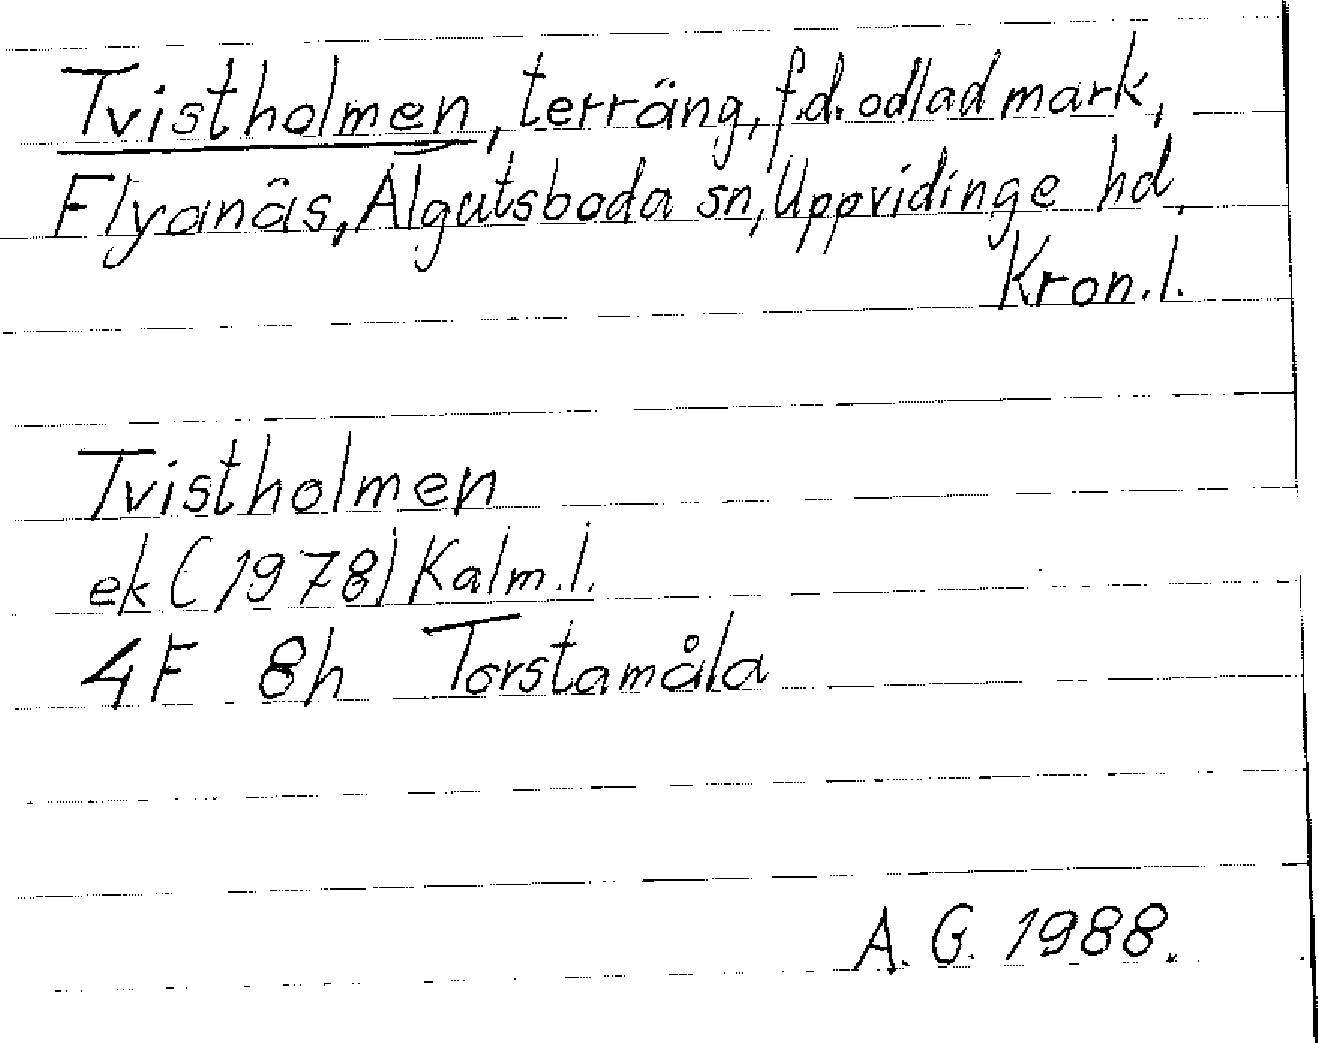 Tvistholmen, terräng, f.d. odlad mark,
Flyanäs, Älgutsboda sn, Uppvidinge hd,
Kron.l.
Tvistholmen
ek (1978) Kalm.l.
4F 8h Torstamåla
A.G. 1988.